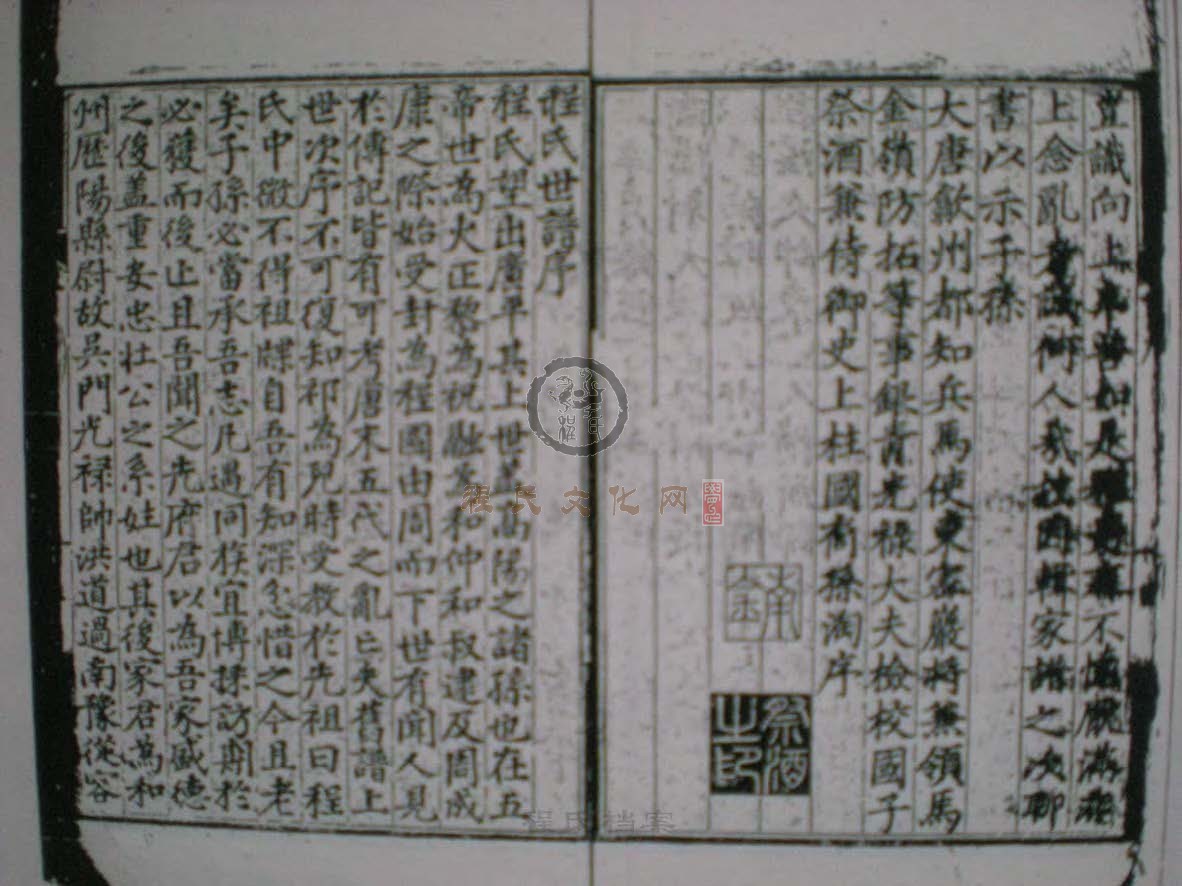 豈識向上立
上念亂 術人 家譜之次聊
書以示子孫
大唐歙州都知兵馬使東密巖將兼領馬
金嶺防拓等事銀青光祿大夫檢校國子
祭酒兼侍御史上柱國裔孫淘序
祭酒之印
程氏世譜序
程氏望出廣平其上世蓋高陽之諸孫也在五
帝世為火正黎為祝融義和仲和叔逮及周成
康之際始受封為程國由周而下世有聞人見
於傳記皆有可考唐末五代之亂亡失舊譜上
世次序不可復知祁為兒時受教於先祖曰程
氏中微不得祖牒自吾有知深念惜之今且老
矣子孫必當承吾志凡過同族宜博採訪期於
必獲而後止且吾聞之先府君以為吾家盛德
之後蓋重安忠壯公之系姓也其後家君為和
州歷陽縣尉故吳門光祿師洪道過南豫從容
程氏文化网
程氏档案